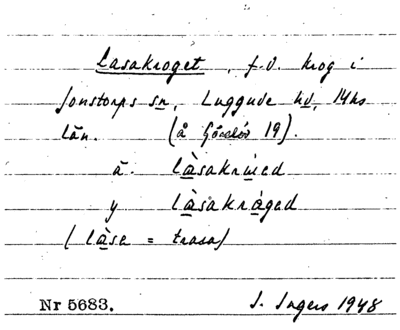 Lasakroget, f.d. krog i
Jonstorps sn, Luggude hd, Mhs
län. (å Görslöv 19).
ä. làsakrẁed
y làsakràged
(làse = trasa)
Nr 5683. I. Ingers 1948